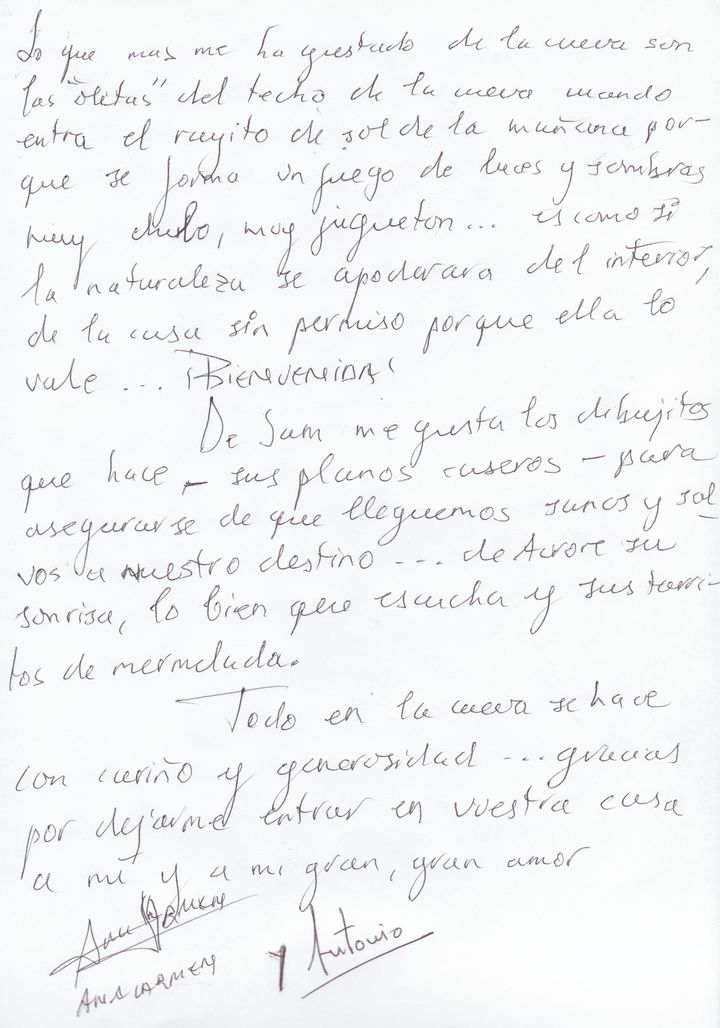 Lo que mas me ha gustado de la cueva son
las "olitas" del techo de la cueva cuando
entra el rayito de sol de la mañana por-
que se forma un juego de luces y sombras
muy chulo, muy jugueton... es como si
la naturaleza se apoderara del interior,
de la casa sin permiso porque ella lo
vale ... ¡BIENVENIDA!
De Sam me gusta los dibujitos
que hace - sus planos caseros - para
asegurarse de que lleguemos sanos y sal
vos a nuestro destino ... de Aurore su
sonrisa, lo bien que escucha y sus tarri-
tos de mermelada.
Todo en la cueva se hace
con cariño y generosidad ... gracias
por dejarme entrar en vuestra casa
a mí y a mi gran, gran amor
Ana Carmen
ANA CARMEN y Antonio